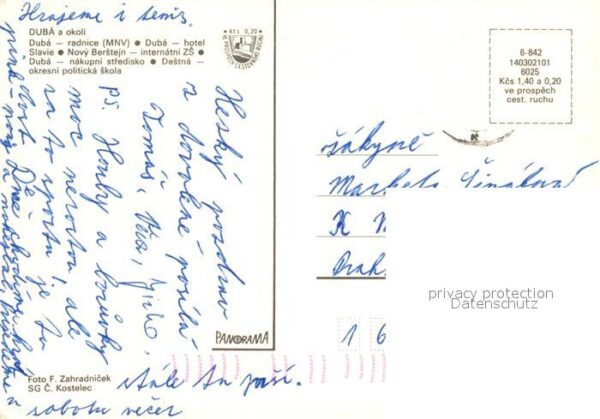 Hrajeme i tenis,
DUBÁ a okolí
Dubá – radnice (MNV) ● Dubá – hotel
Slavie ● Nový Berštejn – internátní ZŠ ●
Dubá – nákupní středisko ● Deštná –
okresní politická škola
Kčs 0,20
VE PROSPĚCH CESTOVNÍHO RUCHU
6-842
140302101
6025
Kčs 1,40 a 0,20
ve prospěch
cest. ruchu
Hezký pozdrav
z dovolené posílá
Tomáš, Věra, Jirka,
PS. Houby a borůvky
moc nerostou, ale
za to sportu je tu
dost
žákyně
Markéta
K
Prah
1 6
privacy protection
Datenschutz
PANORAMA
Foto F. Zahradníček
SG Č. Kostelec
stále tu prší.
v sobotu večer